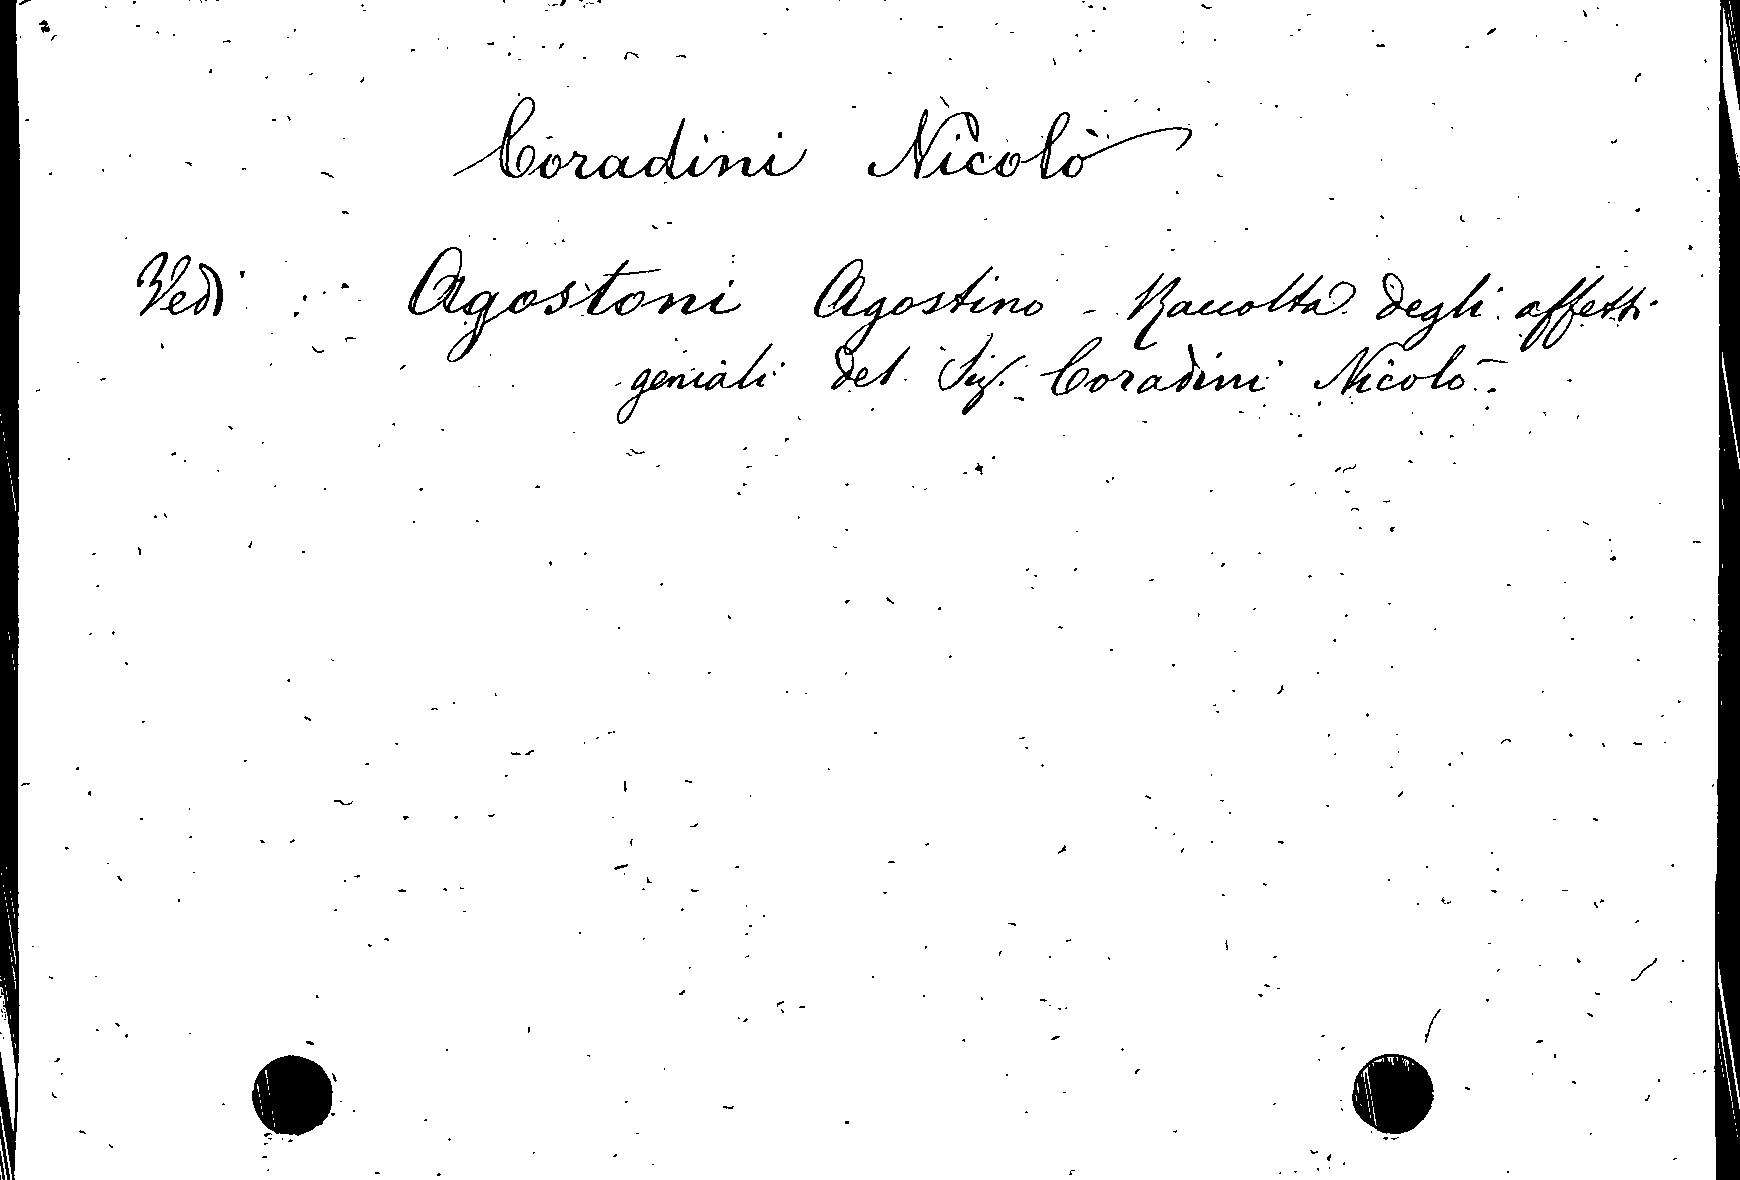 Coradini Nicolò
Vedi : Agostoni Agostino - Raccolta degli affetti
geniali del Sig. Coradini Nicolò.